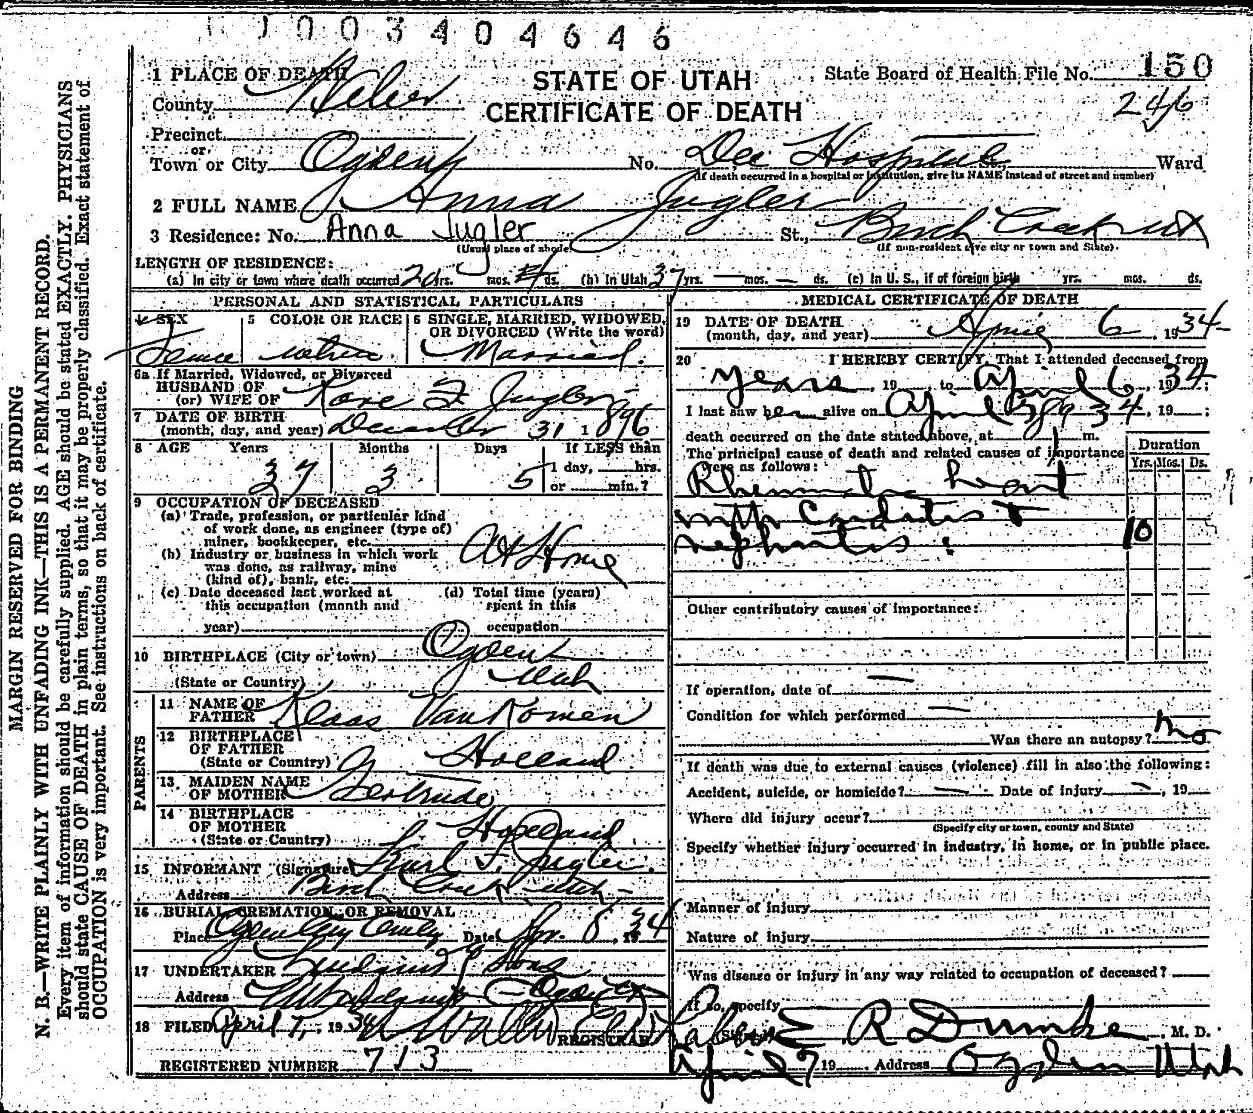 1003404646
1 PLACE OF DEATH
STATE OF UTAH
State Board of Health File No. 150
County Weber
CERTIFICATE OF DEATH
246
Precinct
or
Town or City Ogden No. Dee Hospital St. Ward
(If death occurred in a hospital or institution, give its NAME instead of street and number)
2 FULL NAME Anna Jugler
3 Residence: No. Anna Jugler St., Birch Creek Ut
(Usual place of abode) (If non-resident give city or town and State)
LENGTH OF RESIDENCE:
(a) In city or town where death occurred yrs. mos. ds. (b) In Utah 37 yrs. — mos. — ds. (c) In U. S., if of foreign birth yrs. mos. ds.
PERSONAL AND STATISTICAL PARTICULARS
4 SEX 5 COLOR OR RACE 6 SINGLE, MARRIED, WIDOWED, OR DIVORCED (Write the word)
Female White Married.
6a If Married, Widowed, or Divorced
HUSBAND OF
(or) WIFE OF F. Jugler
7 DATE OF BIRTH
(month, day, and year) December 31 1896
8 AGE Years Months Days If LESS than
1 day, hrs.
37 3 5 or min.?
9 OCCUPATION OF DECEASED
(a) Trade, profession, or particular kind
of work done, as engineer (type of)
miner, bookkeeper, etc. At Home
(b) Industry or business in which work
was done, as railway, mine
(kind of), bank, etc.
(c) Date deceased last worked at
this occupation (month and
year)
(d) Total time (years)
spent in this
occupation
10 BIRTHPLACE (City or town) Ogden
(State or Country) Utah
PARENTS
11 NAME OF
FATHER Klaas Van Komen
12 BIRTHPLACE
OF FATHER
(State or Country) Holland
13 MAIDEN NAME
OF MOTHER Gertrude
14 BIRTHPLACE
OF MOTHER
(State or Country) Holland
15 INFORMANT (Signature) Karl F. Jugler.
Address Birch Creek Utah
16 BURIAL, CREMATION, OR REMOVAL
Place Ogden City Date Apr. 8, 1934
17 UNDERTAKER & Sons
Address Ogden
18 FILED April 7, 1934
REGISTRAR
REGISTERED NUMBER 713
MEDICAL CERTIFICATE OF DEATH
19 DATE OF DEATH
(month, day, and year) April 6, 1934
20 I HEREBY CERTIFY, That I attended deceased from
years, 19 , to April 6, 1934;
I last saw her alive on April 34, 19 ;
death occurred on the date stated above, at m.
The principal cause of death and related causes of importance
were as follows:
Duration
Yrs. Mos. Ds.
Rheumatic heart
with Carditis &
nephritis: 10
Other contributory causes of importance:
If operation, date of —
Condition for which performed —
Was there an autopsy? no
If death was due to external causes (violence) fill in also the following:
Accident, suicide, or homicide? — Date of injury —, 19
Where did injury occur?
(Specify city or town, county and State)
Specify whether injury occurred in industry, in home, or in public place.
Manner of injury
Nature of injury
Was disease or injury in any way related to occupation of deceased?
If so, specify
(Signed) E R Dumke, M. D.
April 7 19 , Address Ogden Utah
MARGIN RESERVED FOR BINDING
N. B.—WRITE PLAINLY WITH UNFADING INK—THIS IS A PERMANENT RECORD.
Every item of information should be carefully supplied. AGE should be stated EXACTLY. PHYSICIANS
should state CAUSE OF DEATH in plain terms, so that it may be properly classified. Exact statement of
OCCUPATION is very important. See instructions on back of certificate.